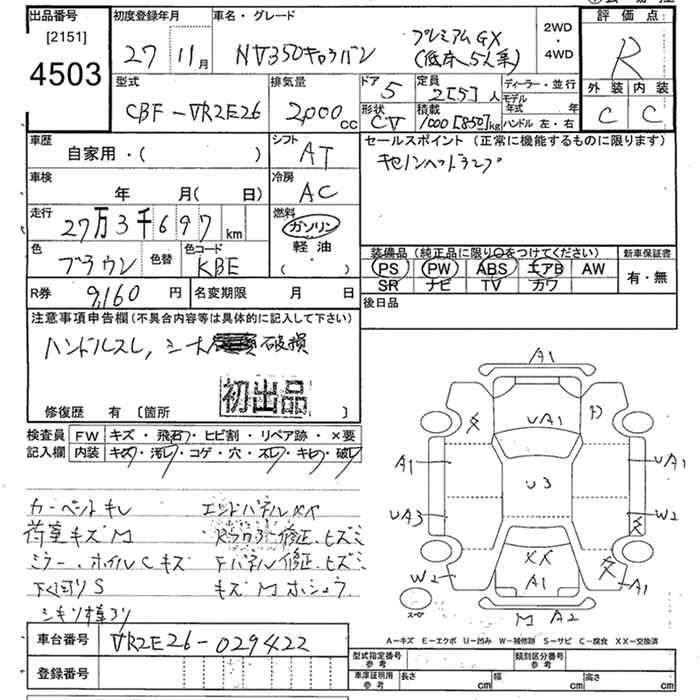 出品番号 初度登録年月 車名・グレード 評価点
[2151] 4503
27年11月 NV350キャラバン プレミアムGX (低床 5人乗) 2WD・4WD
R
型式 排気量 ドア 定員 ディーラー・並行
CBF-VR2E26 2,000cc 5 2[5]人 モデル年式 年
形状 積載 ハンドル 左・右
CV 1000[850]kg
外装 内装
C C
車歴 シフト セールスポイント (正常に機能するものに限ります)
自家用・( ) AT キセノンヘッドランプ
車検 冷房
年 月(日) AC
走行 燃料
27万3千697km ガソリン
軽油
( ・ )
色 色替 色コード
ブラウン KBE
装備品 (純正品に限り○をつけてください) 新車保証書
PS PW ABS エアB AW 有・無
SR ナビ TV カワ
R券 9,160円 名変期限 月 日
後日品
注意事項申告欄 (不具合内容等は具体的に記入して下さい)
ハンドルスレ, シート 破損
初出品
修復歴 有 [箇所 ]
検査員記入欄 FW キズ・飛石・ヒビ割・リペア跡・×要
内装 キズ・汚レ・コゲ・穴・スレ・キレ・破レ
カーペットキレ エンドパネルXX
荷室キズM 修正.ヒズミ
ミラー.ホイルCキズ Fパネル修正.ヒズミ
下回りS キズM
A1
UA1
A1 U3 UA1
UA3 W2
XX
W2 A1 A1
スペア M A2
A-キズ E-エクボ U-凹み W-補修跡 S-サビ C-腐食 XX-交換済
車台番号 VR2E26-029422
登録番号
型式指定番号 参考 類別区分番号 参考
車庫証明用 参考 長さ cm 幅 cm 高さ cm